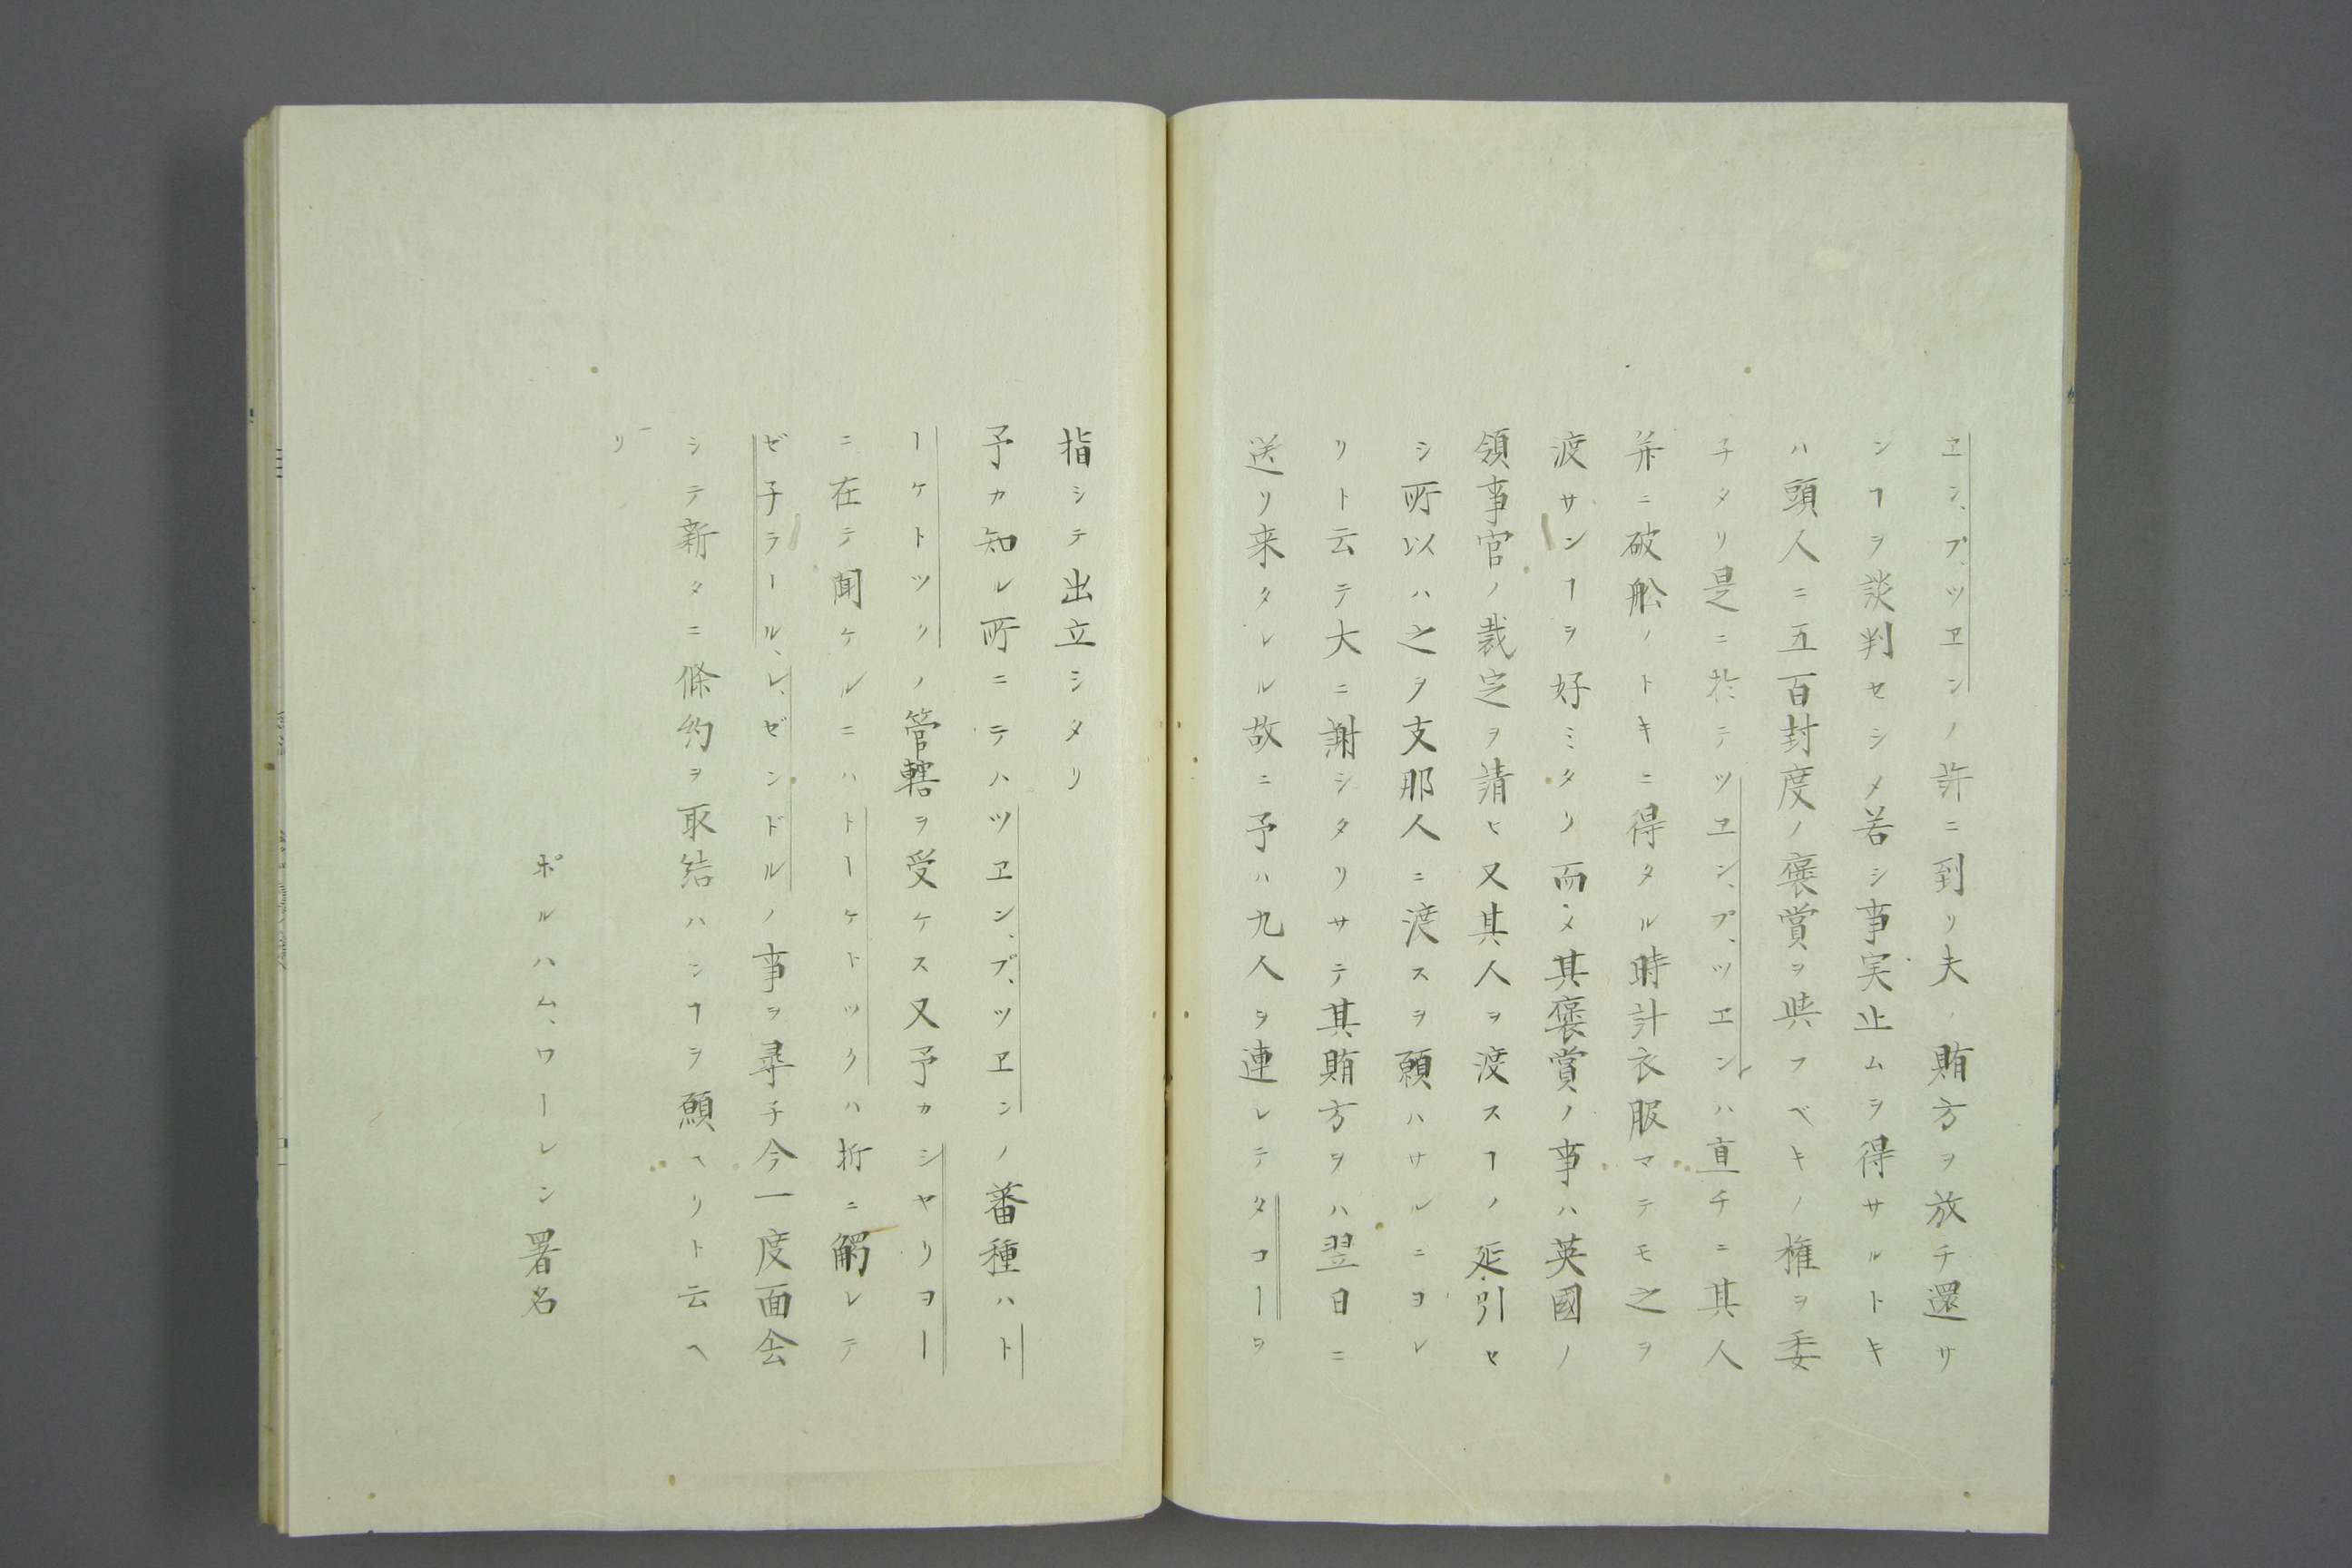 ヱン、プ、ツヱンノ許ニ到リ夫ノ賄方ヲ放チ還サ
シヿヲ談判セシメ若シ事実止ムヲ得サルトキ
ハ頭人ニ五百封度ノ褒賞ヲ與フベキノ権ヲ委
子タリ是ニ於テツヱン、プ、ツヱンハ直チニ其人
并ニ破舩ノトキニ得タル時計衣服マテモ之ヲ
渡サンヿヲ好ミタリ而メ其褒賞ノ事ハ英國ノ
領事官ノ裁定ヲ請ヒ又其人ヲ渡スヿノ延引セ
シ所以ハ之ヲ支那人ニ渡スヲ願ハサルニヨレ
リト云テ大ニ謝シタリサテ其賄方ヲハ翌日ニ
送リ来タレル故ニ予ハ九人ヲ連レテタコーヲ
指シテ出立シタリ
予カ知ル所ニテハツヱン、プ、ツヱンノ蕃種ハト
ーケトツクノ管轄ヲ受ケス又予カシヤリヨー
ニ在テ聞ケルニハトーケトツクハ折ニ觸レテ
ゼ子ラール、レ、ゼンドルノ事ヲ尋子今一度面会
シテ新タニ條約ヲ取結ハンヿヲ願ヘリト云ヘ
リ
ポルハム、ワーレン署名